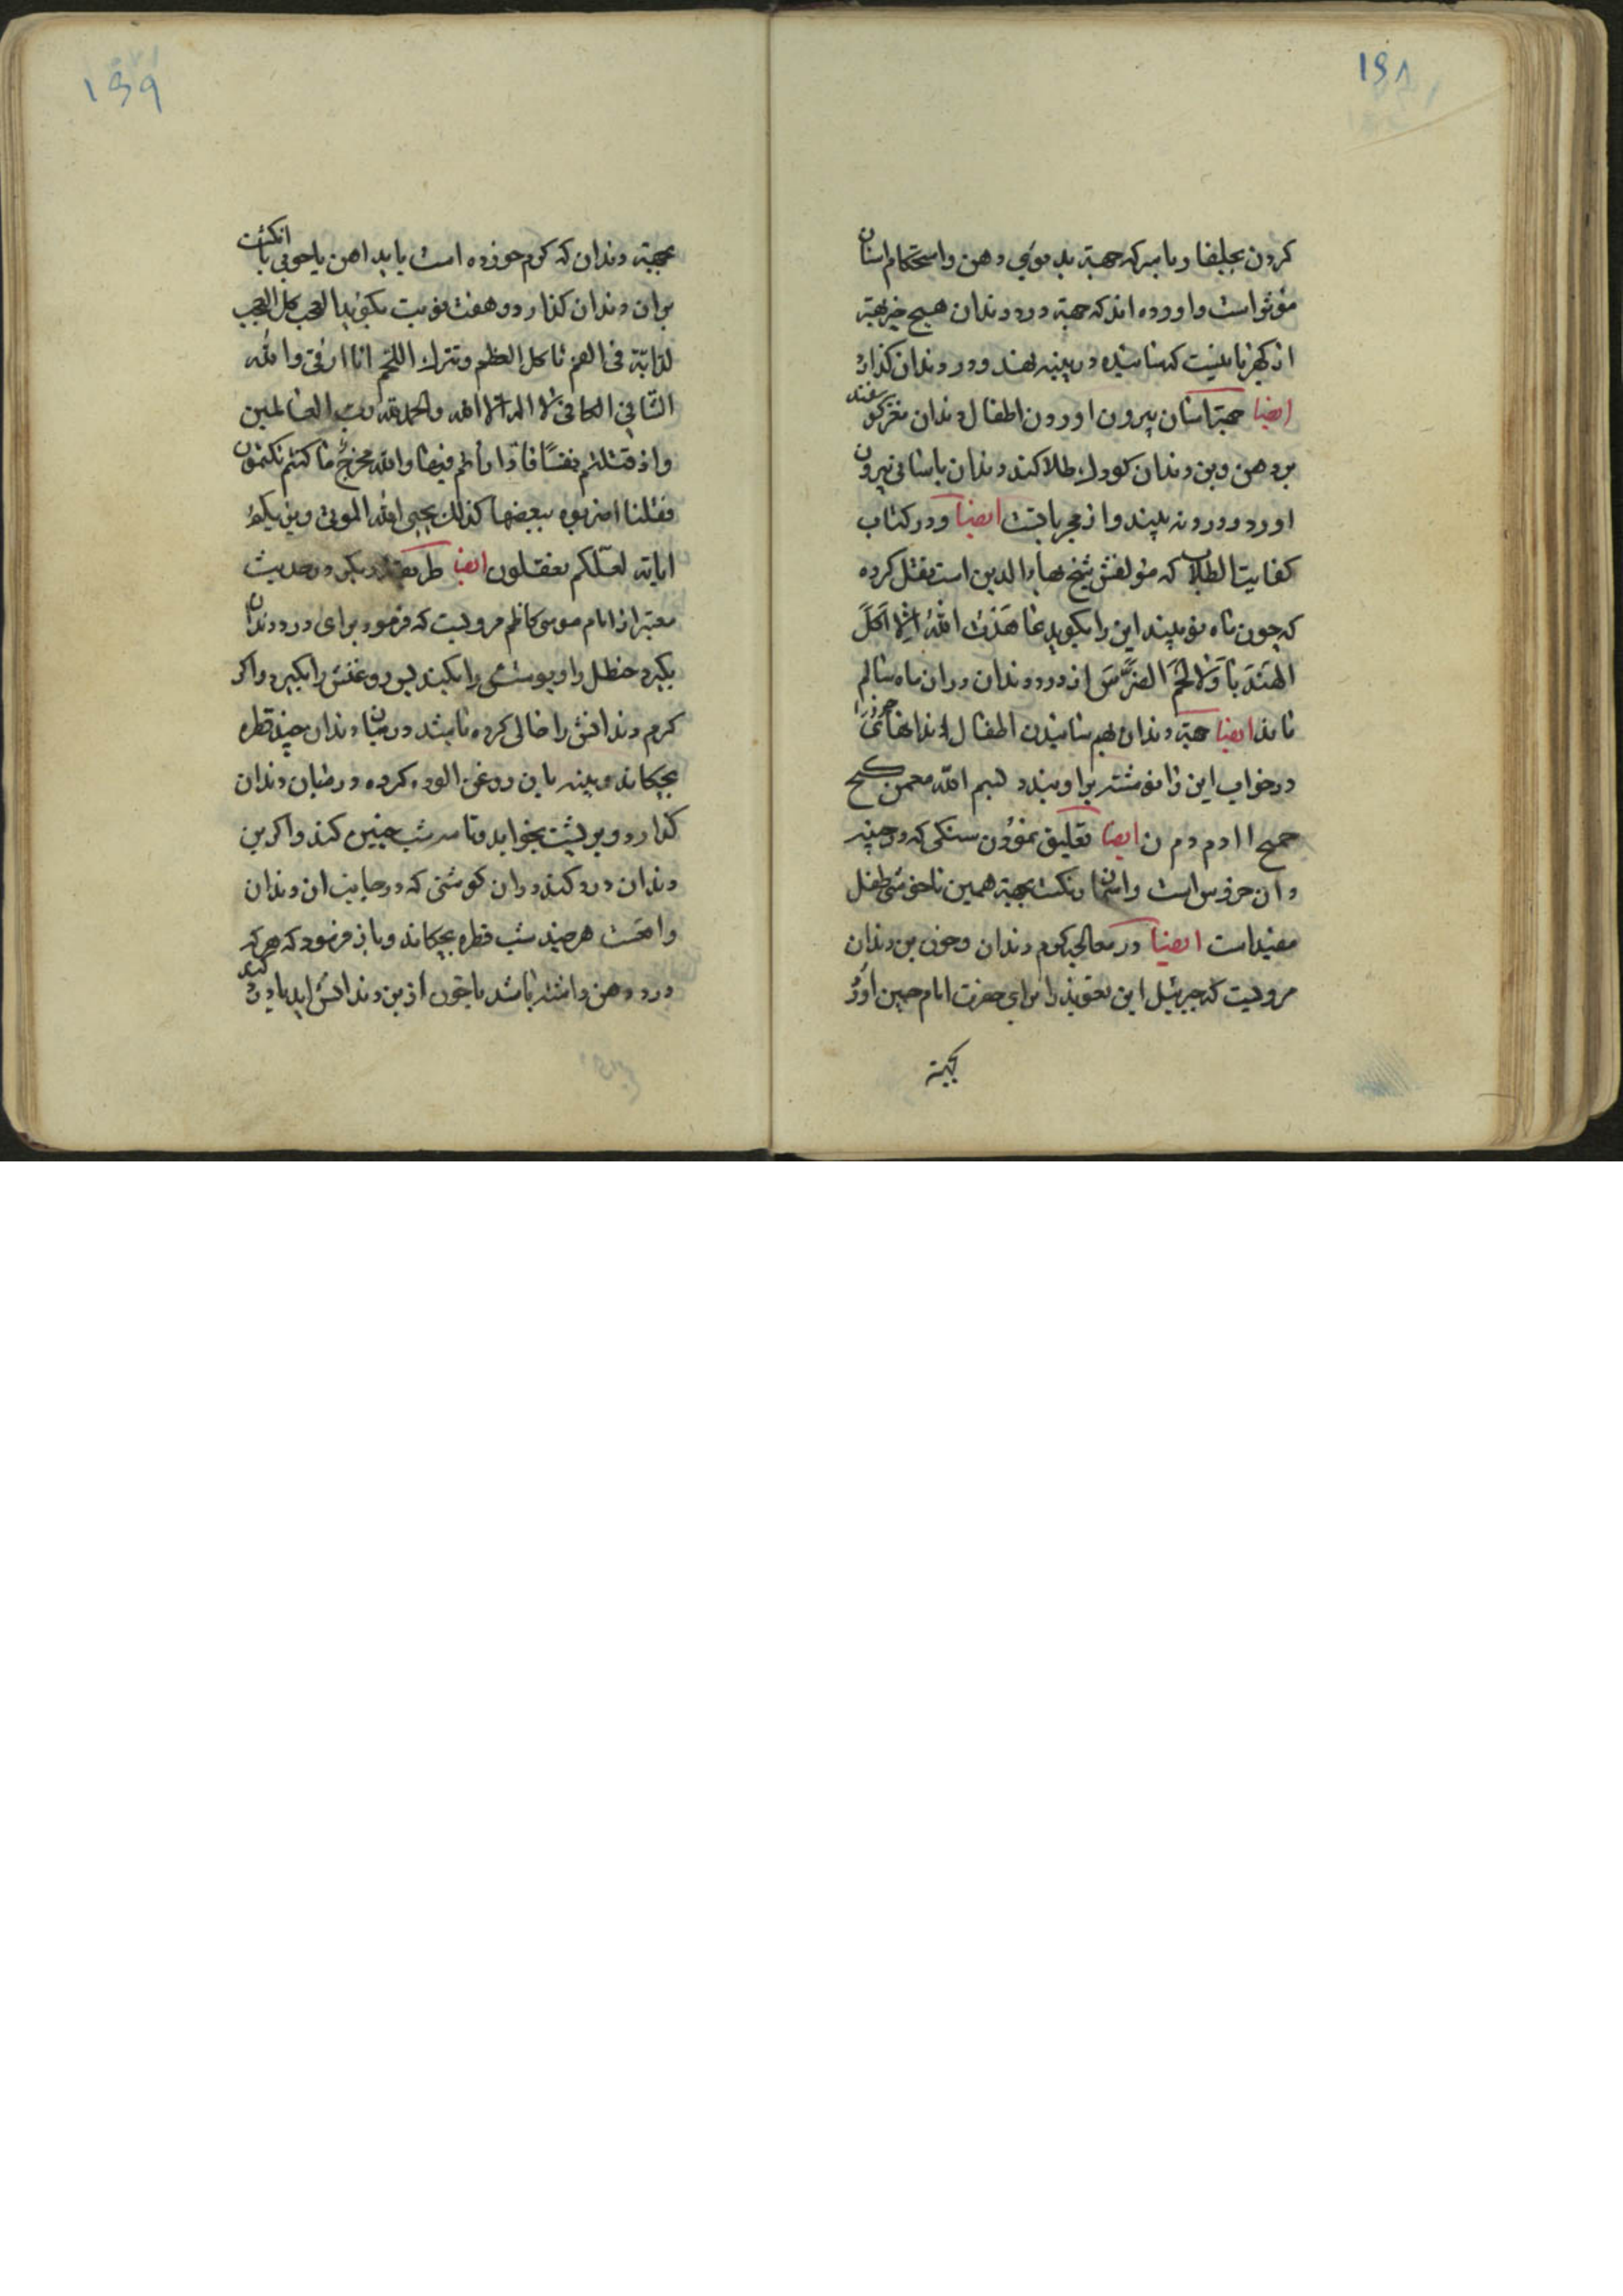 ۱۶۸
کردن بجلبفا و با سرکه جهته بد بوئی دهن و استحکام اسنان
مؤثر است و اورده اند که جهته درد دندان هیچ چیز بهتر
از کهربا نیست که سائیده در پنبه نهند و در دندان گذارد
ایضا جهته اسان بیرون اوردن اطفال دندان مغز کوسفند
بر دهن و بن دندان کودک طلا کند دندان باسانی بیرون
اورد و درد نه بیند و از مجرباتست ایضا و در کتاب
کفایت الطلاب که مؤلفش شیخ بهاء الدین است نقل کرده
که چون ماه نو بیند این را بگوید عاهدت الله ان لا اکل
الهندبا ولا لحم الفرس از درد دندان در ان ماه سالم
ماند ایضا جهته دندان بهم سائیدن اطفال دندانهای خود را
در خواب این را نوشته بر او بندد بسم الله
حمح ا ا دم دم ن ایضا تعلیق نمودن سنکی که در چینه
دان خروس است و استخوان نکست بجهته همین ناخوشی طفل
مفید است ایضا در معالجه کرم دندان و خون بن دندان
مرویست که جبرئیل این تعویذ را برای حضرت امام حسین اورد
بجهته
۱۶۹
بجهته دندان که کرم خورده است باید اهن یا چوبی یا انکشت
بر ان دندان کذارد و هفت نوبت بکوید العجب کل العجب
لدابة فی الفم تاکل العظم و تترك اللحم انا ارقی والله
الشافی الکافی لا اله الا الله والحمد لله رب العالمین
واذ قتلتم نفسا فادارأتم فیها والله مخرج ما کنتم تکتمون
فقلنا اضربوه ببعضها کذلك یحیی الله الموتی ویریکم
ایاته لعلکم تعقلون ایضا طریقه دیکر در حدیث
معتبر از امام موسی کاظم مرویست که فرمود برای درد دندان
بکیرد حنظل را و پوستش را بکند پس روغنش را بکیرد و اکر
کرم دندانش را خالی کرده باشد در میان دندان چند قطره
بچکاند و پنبه باین روغن الوده کرده در میان دندان
کذارد و بر پشت بخوابد و تا سه شب چنین کند و اکر بن
دندان درد کند در ان کوشی که در جانب ان دندان
واقعست هر چند شب قطره بچکاند و باز فرمود که هر که
درد دهن داشته باشد یا خون از بن دندانش اید یا درد کند